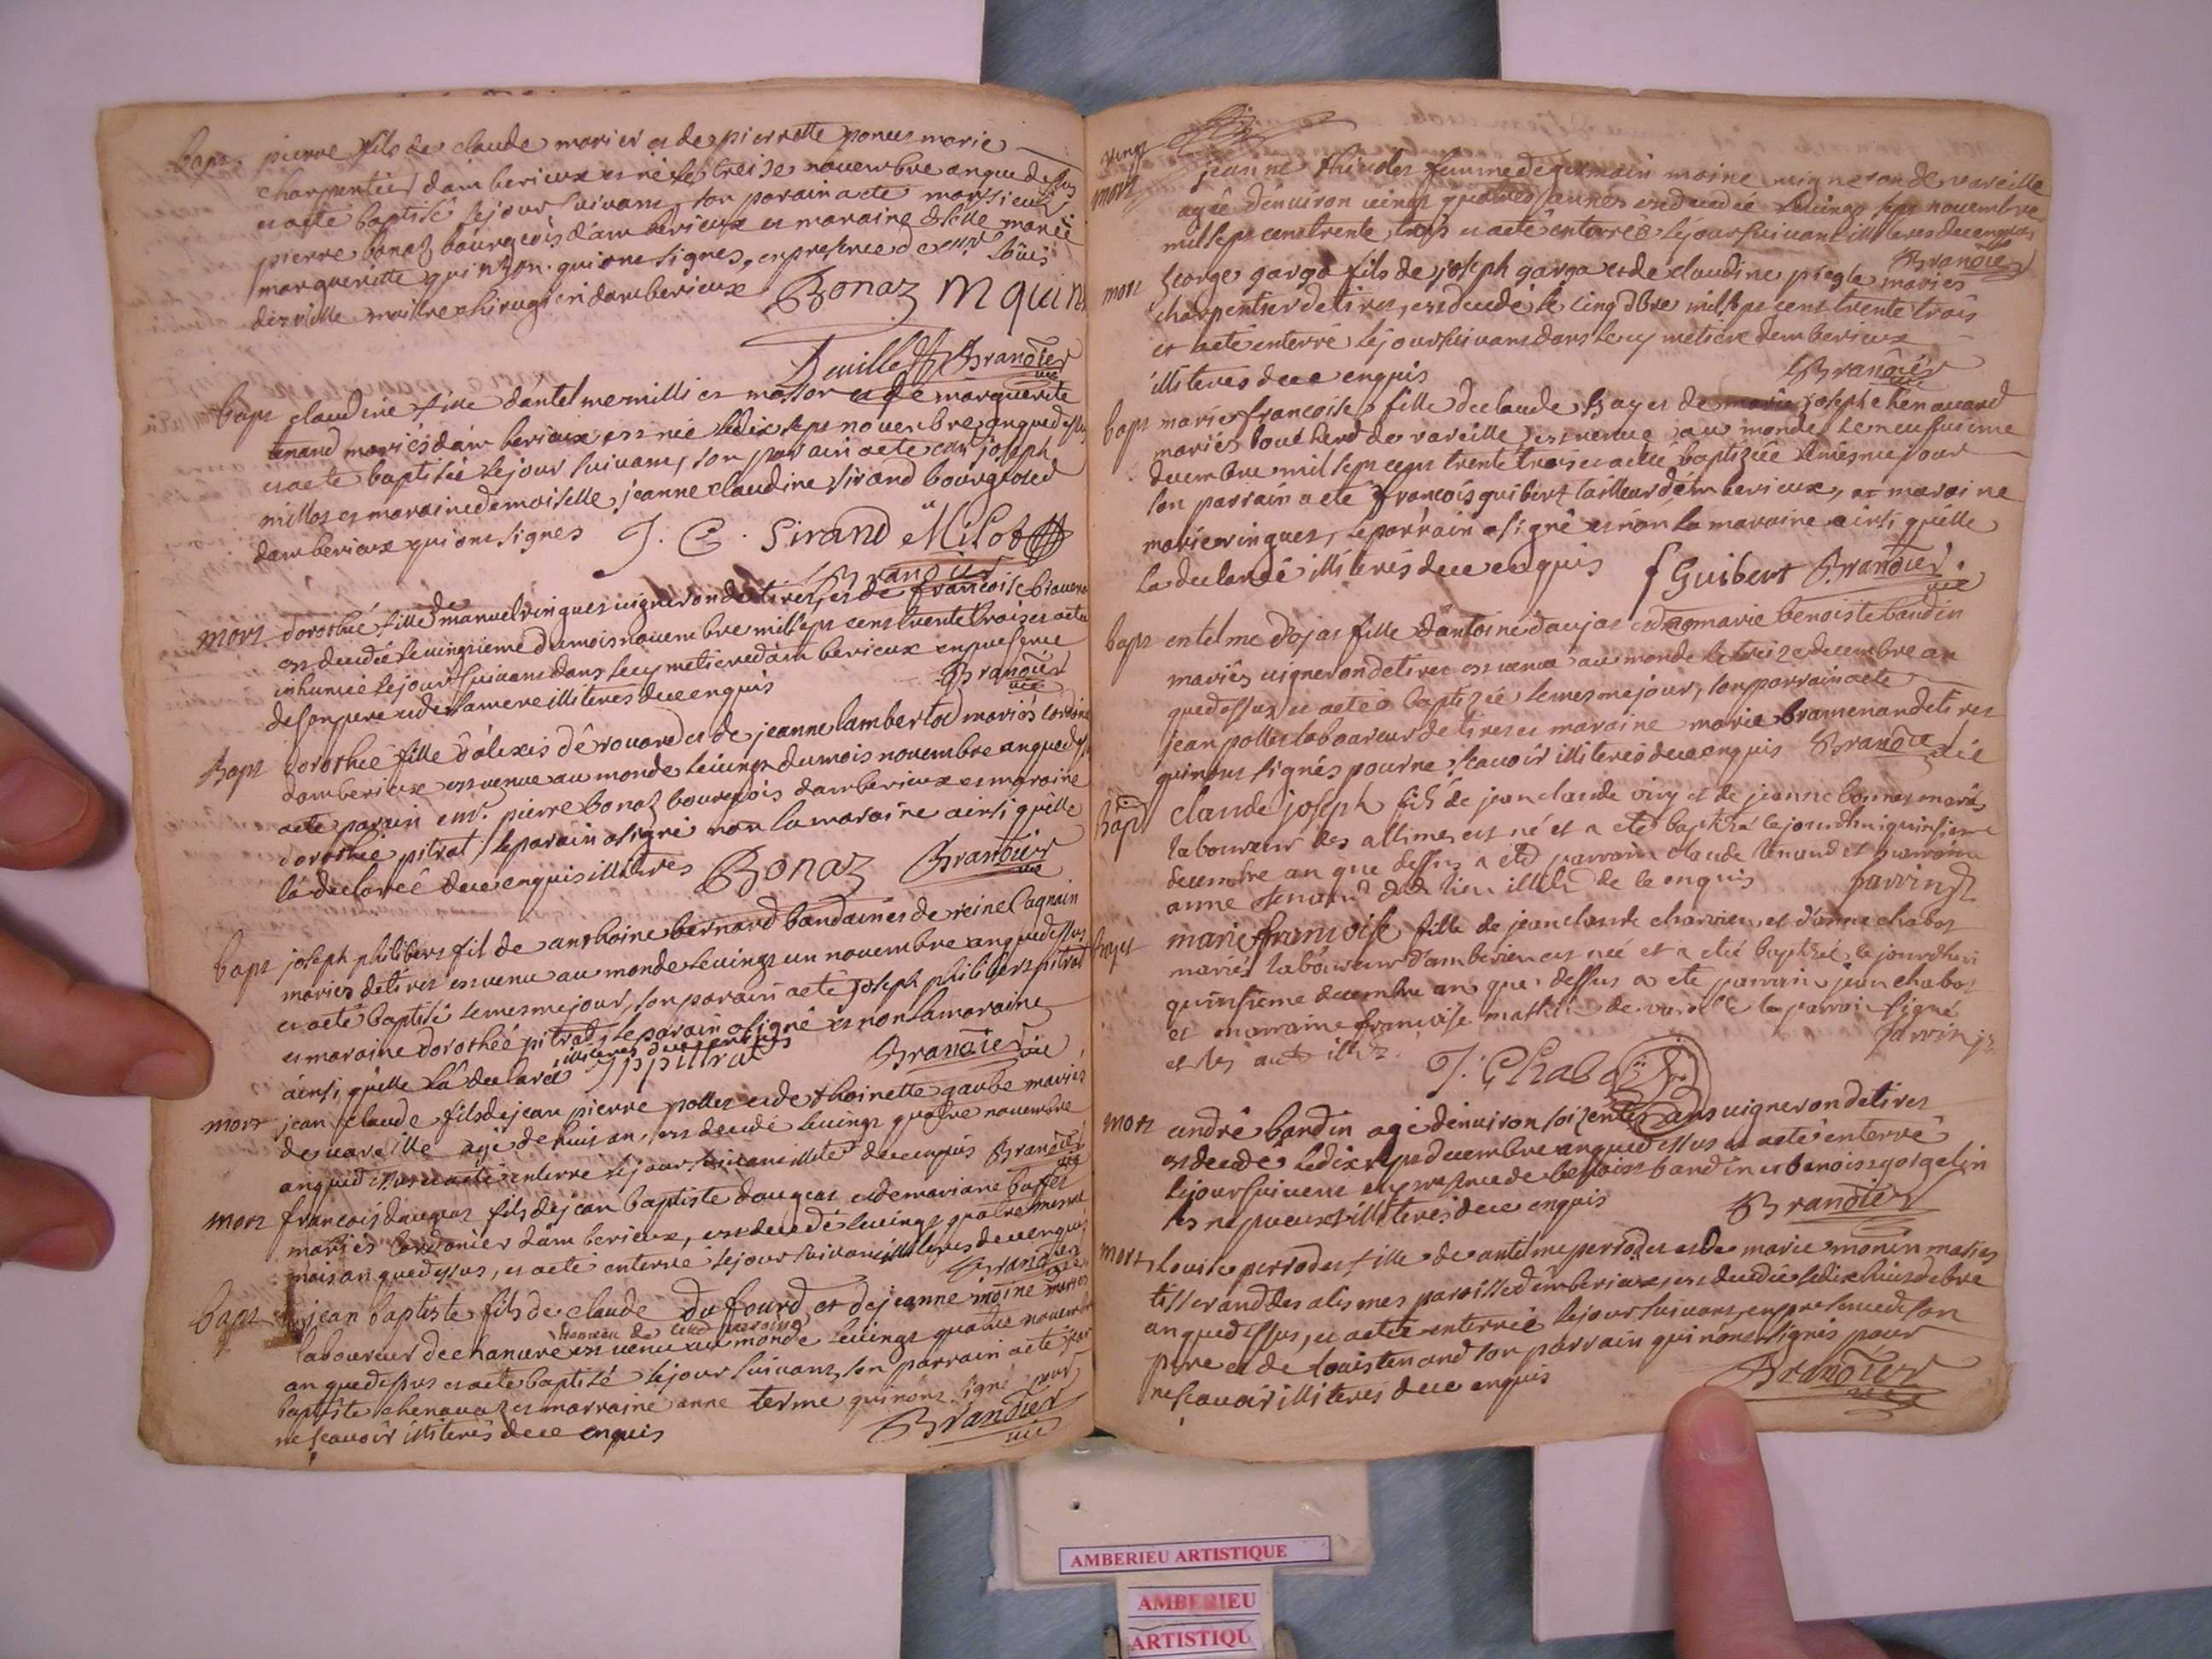 bapt pierre fils de claude morier et de pierrette ponus marie
charpentier damberieux est né le treise novembre an que dessus
et a eté baptisé le jour suivant, son parain a eté monsieur
pierre bonaz bourgeois damberieux et maraine dslle marie
margueritte quinson qui ont signes, en presence de
maitre chirugien damberieux Bonaz M quin
Deville Brandier
vic
bapt claudine fille dantelme milliet masson et de marguerite
tenand mariés damberieux est née le dix sept novembre an que dessus
et a eté baptisée le jour suivant, son parain a eté joseph
millot et maraine demoiselle jeanne claudine sirand bourgeoise
damberieux qui ont signes J. C. Sirand Milot
Brandier
mort dorothée fille de manuel vinguet vigneron de tiret, et de francoise
est decedée le vingtieme du mois novembre mil sept cens trente trois et a eté
inhumée le jour suivant dans le cymetiere damberieux en presence
de son pere et de la mere illiteres de ce enquis Brandier
vic
Bapt dorothée fille d'alexis derouard et de jeanne lambert mariés
damberieux est venue au monde le vingt du mois novembre an que dessus
a eté parain mr. pierre bonaz bourgeois damberieux et maraine
dorothée pitrat, le parain a signé non la maraine ainsi qu'elle
la declareé de ce enquis illiteres Bonaz Brandier
vic
bapt joseph philibert fils de anthoine bernard bandain et de reine cagnain
mariés de tiret est venu au monde le vingt un novembre an que dessus
et a eté baptisé le mesme jour, son parain a eté joseph philibert pitrat
et maraine dorothée pitrat, le parain a signé et non la maraine
illiteres de ce enquis
ainsi qu'elle la declaré Jppittrat Brandier
vic
mort jean claude fils de jean pierre pollet et de thoinette gaube mariés
de vareille agé de huit an, est decedé le vingt quatre novembre
an que dessus et a eté enterré le jour suivant illiteré de ce enquis Brandier
vic
mort francois daugeas fils de jean baptiste daugeas et de mariane buffet
mariés cordonier damberieux, est decedé le vingt quatre mesme
mois an que dessus, et a eté enterré le jour suivant illiteres de ce enquis
Brandier
bapt jean baptiste fils de claude Dufourd et de jeanne moine mariés
hameau de cette paroisse
laboureur de chanure est venu au monde le vingt quatre novembre
an que dessus et a eté baptisé le jour suivant, son parrain a eté jean
baptiste chenavaz et marraine anne terme qui n'ont signé pour
ne scavoir illiterés de ce enquis Brandier
vic
vingt
mort jeanne theudes femme de germain moine vigneron de vareille
agée d'environ vingt quatres années est decedée le vingt sept novembre
mil sept cens trente trois et a eté enterrée le jour suivant illiteres de ce enquis
Brandier
mort George garga fils de joseph garga et de claudine piegle mariés
charpentier de tiret, est decedé le cinq dbre mil sept cens trente trois
et a eté enterré le jour suivant dans le cymetiere damberieux
illiterés de ce enquis Brandier
vic
bapt marie francoise fille de claude Bayet de joseph chenavard
mariés boucherd de vareille est venue au monde le neufvieme
decembre mil sept cens trente trois et a eté baptizée le mesme jour
son parrain a eté francois guibert tailleur d'amberieux, et maraine
marie vinguet, le parrain a signé et non la maraine ainsi qu'elle
la declareé illiterés de ce enquis f Guibert Brandier
vic
bapt entelme dojas fille dantoine daujas et de marie benoiste bandin
mariés vigneron de tiret est venue au monde le treize decembre an
que dessus et a eté baptizée le mesme jour, son parrain a eté
jean pollet laboureur de tiret et maraine marie bramenan de tiret
qui n'ont signés pour ne scavoir illiterés de ce enquis Brandier vic
bapt claude joseph fils de jean claude viry et de jeanne bonnet mariés
laboureur des allimes est né et a eté baptisé le jourdhui quinsieme
decembre an que dessus a eté parrain claude tenand et marraine
anne tenand dudt lieu illité de ce enquis Jarrin
bapt marie francoise fille de jean claude charvieu, et d'anne chabot
mariés laboureur d'amberieu est neé et a eté baptisé le jourdhui
quinsieme decembre an que dessus a eté parrain jean chabot
et marraine francoise de vareille le parrain signé
et les autr illitr. Jarrin
J. Chabot
mort andré bandin agé denviron soizentes ans vigneron de tiret
est decedé le dix sept decembre an que dessus et a eté enterré
le jour suivant en presence de benoist bandin et benoist gosgelin
les nepueux illiterés de ce enquis Brandier
mort Louise perrodet fille de antelme perrodet et de marie monin mariés
tisserand des alismes paroisse d'amberieux, est decedée le dix huit debre
an que dessus, et a eté enterrée le jour suivant, en presence de son
pere et de louis tenand son parrain qui n'ont signés pour
ne scavoir illiterés de ce enquis Brandier
vic
AMBERIEU ARTISTIQUE
AMBERIEU
ARTISTIQU